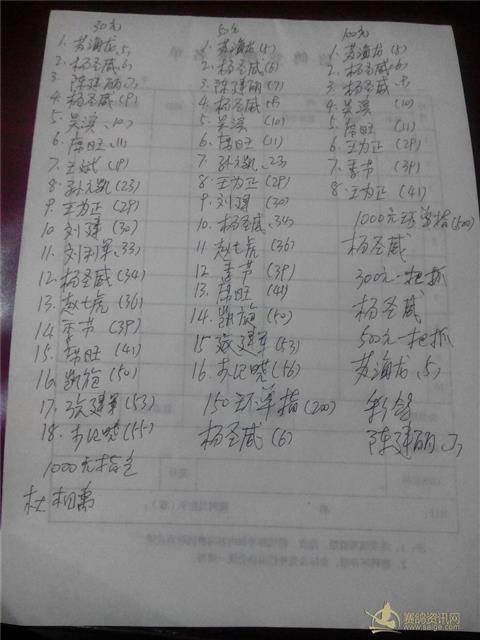 30元
1. 苏海龙、5,
2. 杨圣威、6,
3. 陈建丽、7,
4. 杨圣威 (9)
5. 吴滨、10,
6. 陈旺、11,
7. 王斌 (19)
8. 孙元凯 (23)
9. 王为正 (29)
10 刘建 (30)
11. 刘利军、33,
12. 杨圣威 (34)
13. 赵七虎 (36)
14 季节 (39)
15. 陈旺 (41)
16. 凯旋 (50)
17. 建军 (53)
18. (55)
1000元指定
杜相禹
50元
1. 苏海龙 (5)
2. 杨圣威 (6)
3. 陈建丽 (7)
4. 杨圣威、9,
5. 吴滨 (10)
6. 陈旺 (11)
7. 孙元凯、23,
8. 王为正 (29)
9. 刘建 (30)
10. 杨圣威、34,
11 赵七虎 (36)
12 季节 (39)
13. 陈旺 (41)
14. 凯旋 (50)
15 建军 (53)
16. (56)
150环单指 (200)
杨圣威 (6)
100元
1. 苏海龙 (5)
2. 杨圣威 (6)
3. 杨圣威、9,
4. 吴滨 (10)
5. 陈旺 (11)
6. 王为正 (29)
7. 季节 (39)
8 王为正 (41)
1000元环单指 (500)
杨圣威
300元一把抓
杨圣威
500元一把抓
苏海龙、5,
彩鸽
陈建丽、7,
赛鸽资讯网
www.saige.com